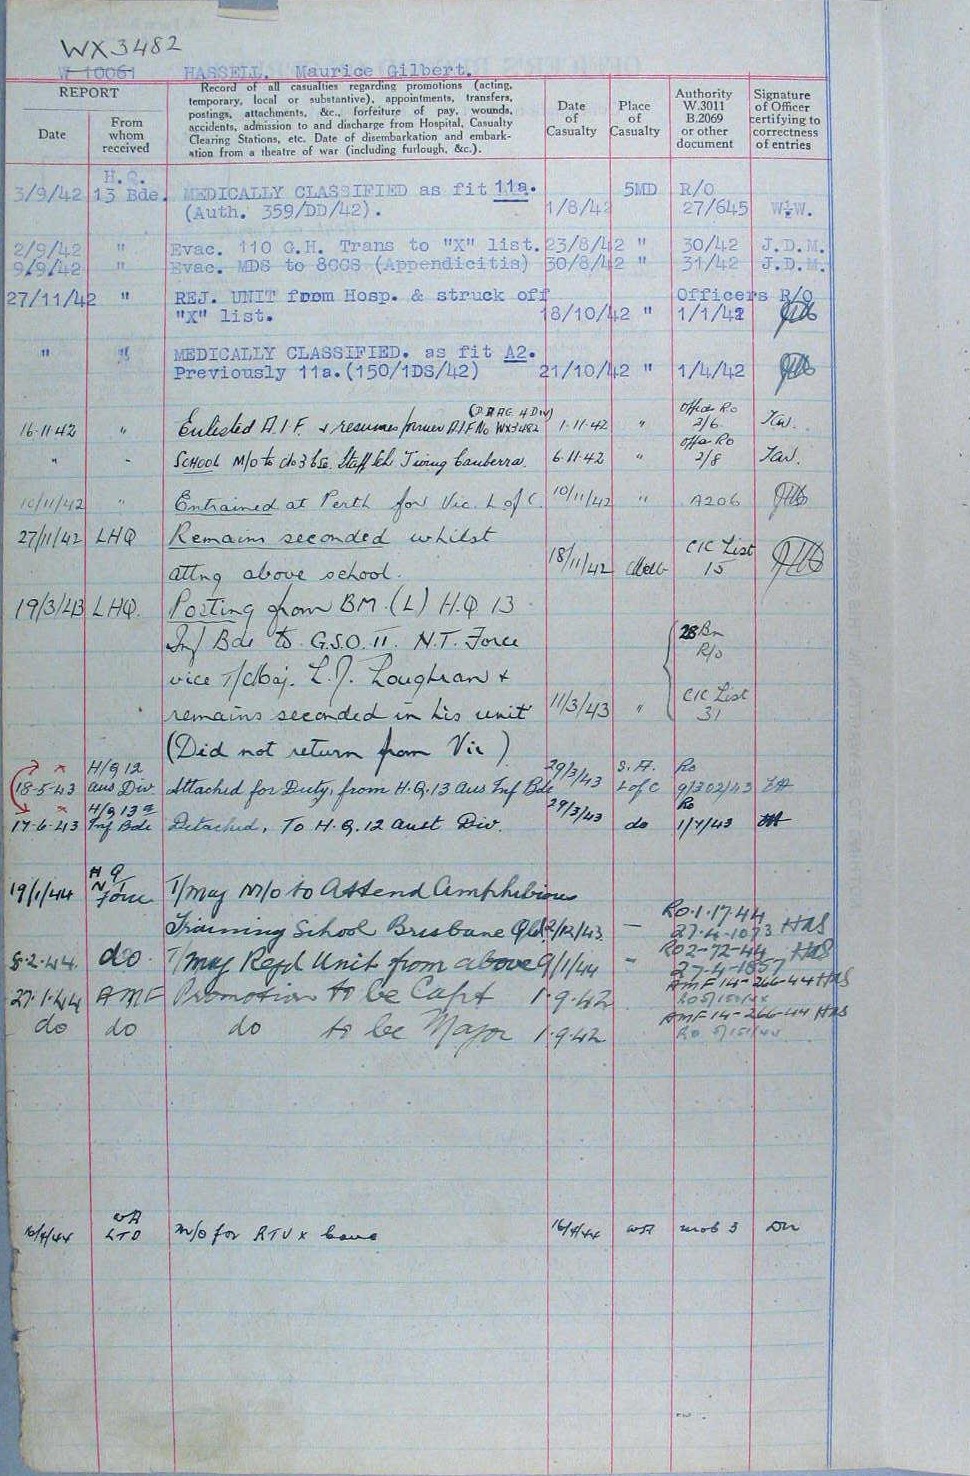 WX3482
W 10061 HASSELL. Maurice Gilbert.
REPORT
Date
From whom received
Record of all casualties regarding promotions (acting,
temporary, local or substantive), appointments, transfers,
postings, attachments, &c., forfeiture of pay, wounds,
accidents, admission to and discharge from Hospital, Casualty
Clearing Stations, etc. Date of disembarkation and embark-
ation from a theatre of war (including furlough, &c.).
Date of Casualty
Place of Casualty
Authority W.3011 B.2069 or other document
Signature of Officer certifying to correctness of entries
H.Q.
3/9/42 13 Bde. MEDICALLY CLASSIFIED as fit 11a. 5MD R/O
(Auth. 359/DD/42). 1/8/42 27/645 W.W.
2/9/42 " Evac. 110 G.H. Trans to "X" list. 23/8/42 " 30/42 J.D.M.
9/9/42 " Evac. MDS to 8CCS (Appendicitis) 30/8/42 " 31/42 J.D.M.
27/11/42 " REJ. UNIT from Hosp. & struck off Officers R/O
"X" list. 18/10/42 " 1/1/42
" " MEDICALLY CLASSIFIED. as fit A2.
Previously 11a.(150/1DS/42) 21/10/42 " 1/4/42
(DAAG 4 Div) Offrs Ro
16.11.42 " Enlisted A.I.F. & resumes former A.I.F No WX3482 1.11.42 " 2/6
Offrs Ro
" - SCHOOL M/o to do 3 Staff Sch Canberra. 6.11.42 " 2/8
10/11/42 " Entrained at Perth for Vic. L of C. 10/11/42 " A206
27/11/42 LHQ Remains seconded whilst
attng above school. 18/11/42 Melb CIC List 15
19/3/43 LHQ. Posting from BM.(L) H.Q 13
Inf Bde to G.S.O. II. N.T. Force 28 Bn R/o
vice T/Maj. L.J. Loughran &
remains seconded in his unit 11/3/43 " CIC List 31
(Did not return from Vic)
x H/Q 12 29/3/43 S.A. Ro
18-5-43 Aus Div Attached for Duty, from H.Q.13 Aus Inf Bde L of C 9/302/43
x H/Q 13 29/3/43 Ro
17-6-43 Inf Bde Detached, To H.Q. 12 Aust Div. do 1/7/43
H Q
19/1/44 N T Force T/Maj M/o to Attend Amphibious
Training School Brisbane Qld. 2/12/43. — RO.1.17.44 27.4.1073 HAS
8.2.44. do. T/Maj Rejd Unit from above 9/1/44 " RO2-72-44 27-4-1857 HAS
27.1.44 AMF Promotion to be Capt 1.9.42 AMF 14-266-44 HAS
do do do to be Major 1.9.42 AMF 14-266-44 HAS
WA
16/4/44 LTD M/o for RTU x leave 16/4/44 WA mob 3